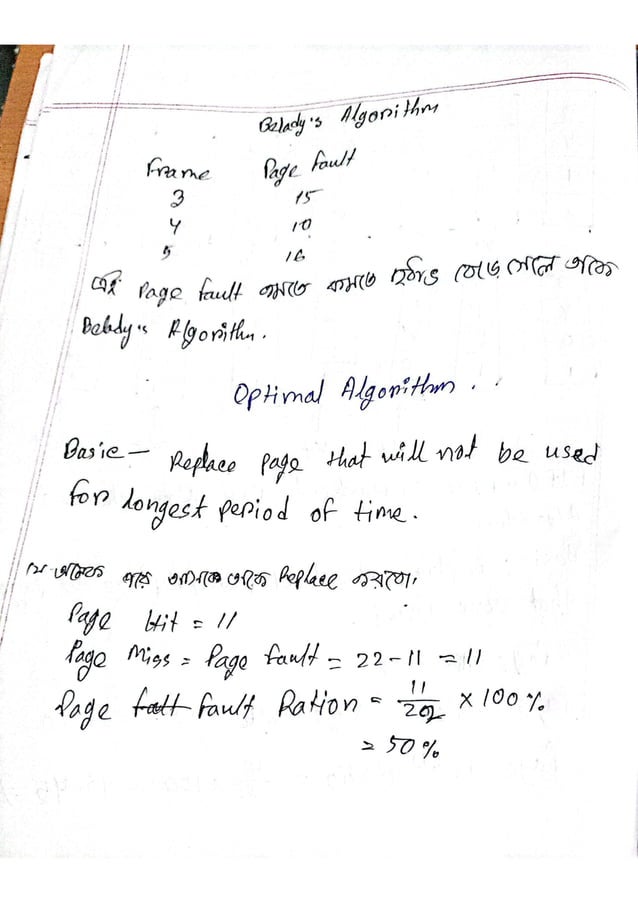 Belady's Algorithm
Frame Page fault
3 15
4 10
5 16
এই Page fault কমতে কমতে হঠাৎ বেড়ে গেলে তাকে
Belady's Algorithm.
Optimal Algorithm.
Basic - Replace page that will not be used
for longest period of time.
অনেক পরে আসবে তাকে Replace করবো।
Page Hit = 11
Page Miss = Page fault = 22-11 = 11
Page fault Ration = 11/22 × 100%
= 50%